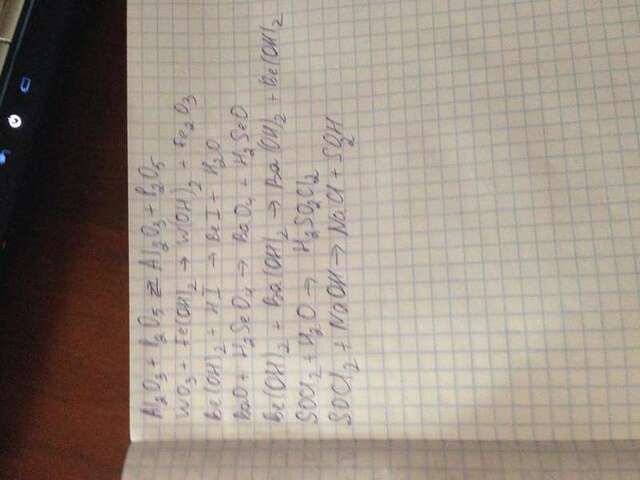 Al₂O₃ + P₂O₅ ⇄ Al₂O₃ + P₂O₅
WO₃ + Fe(OH)₂ → W(OH)₂ + Fe₂O₃
Be(OH)₂ + HI → BeI + H₂O
BaO + H₂SeO₄ → BaO₄ + H₂SeO
Be(OH)₂ + Ba(OH)₂ → Ba(OH)₂ + Be(OH)₂
SOCl₂ + H₂O → H₂SO₂Cl₂
SOCl₂ + NaOH → NaCl + SO₂H